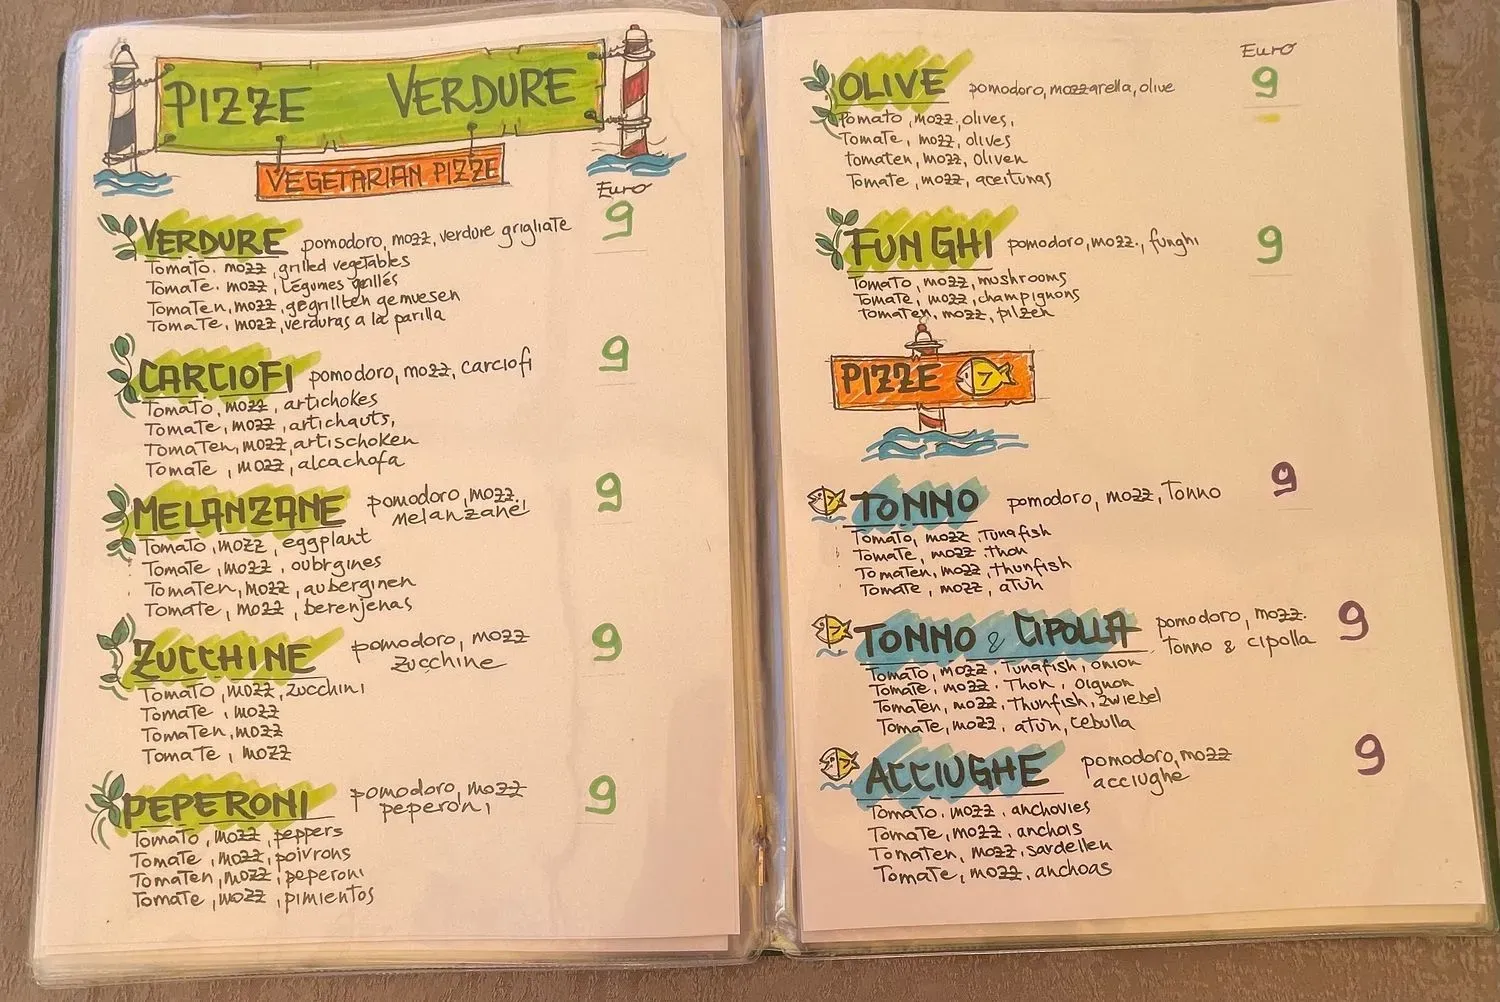 PIZZE VERDURE
VEGETARIAN PIZZE
Euro
VERDURE pomodoro, mozz, verdure grigliate 9
Tomato. mozz, grilled vegetables
Tomate. mozz, Légumes grillés
Tomaten, mozz, gegrillten gemuesen
Tomate, mozz, verduras a la parilla
CARCIOFI pomodoro, mozz, carciofi 9
Tomato, mozz, artichokes
Tomate, mozz, artichauts,
Tomaten, mozz, artischoken
Tomate, mozz, alcachofa
MELANZANE pomodoro, mozz. 9
melanzane
Tomato, mozz, eggplant
Tomate, mozz, oubrgines
Tomaten, mozz, auberginen
Tomate, mozz, berenjenas
ZUCCHINE pomodoro, mozz 9
zucchine
Tomato, mozz, zucchini
Tomate, mozz
Tomaten, mozz
Tomate, mozz
PEPERONI pomodoro, mozz 9
peperoni
Tomato, mozz, peppers
Tomate, mozz, poivrons
Tomaten, mozz, peperoni
Tomate, mozz, pimientos
Euro
OLIVE pomodoro, mozzarella, olive 9
Tomato, mozz, olives,
Tomate, mozz, olives
tomaten, mozz, oliven
Tomate, mozz, aceitunas
FUNGHI pomodoro, mozz., funghi 9
Tomato, mozz, mushrooms
Tomate, mozz, champignons
Tomaten, mozz, pilzen
PIZZE
TONNO pomodoro, mozz, Tonno 9
Tomato, mozz, Tunafish
Tomate, mozz. thon
Tomaten, mozz, thunfish
Tomate, mozz, atún
TONNO & CIPOLLA pomodoro, mozz. 9
Tonno & cipolla
Tomato, mozz, Tunafish, onion
Tomate, mozz. Thon, oignon
Tomaten, mozz, thunfish, zwiebel
Tomate, mozz, atún, cebulla
ACCIUGHE pomodoro, mozz 9
acciughe
Tomato. mozz. anchovies
Tomate, mozz. anchois
Tomaten, mozz, sardellen
Tomate, mozz, anchoas